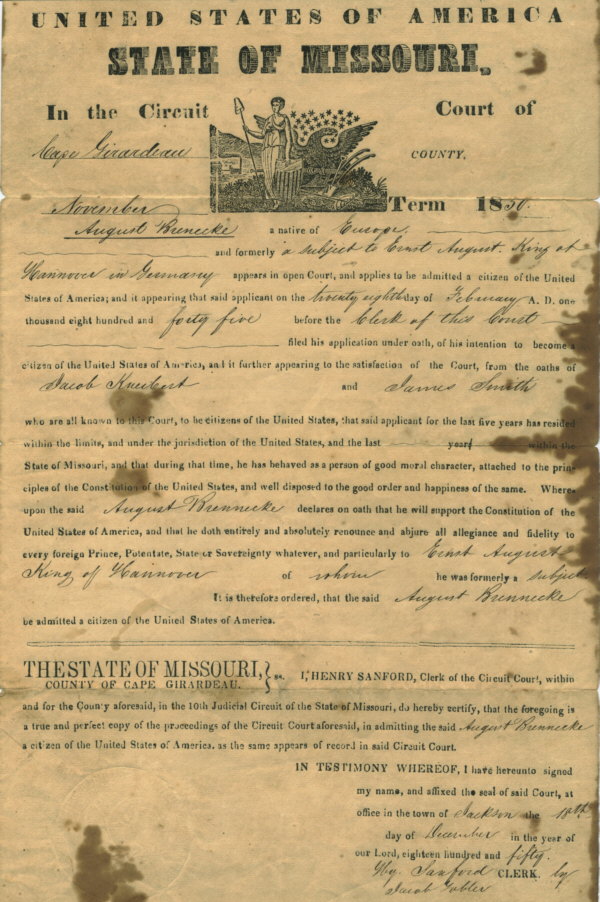 UNITED STATES OF AMERICA
STATE OF MISSOURI.
In the Circuit Court of
Cape Girardeau COUNTY,
November Term 1850.
August Brenecke a native of Europe
and formerly a subject to Ernst August King of
Hannover in Germany appears in open Court, and applies to be admitted a citizen of the United
States of America; and it appearing that said applicant on the twenty eighth day of February A. D. one
thousand eight hundred and forty five before the Clerk of this Court
filed his application under oath, of his intention to become a
citizen of the United States of America, and it further appearing to the satisfaction of the Court, from the oaths of
Jacob and James Smith
who are all known to this Court, to be citizens of the United States, that said applicant for the last five years has resided
within the limits, and under the jurisdiction of the United States, and the last year within the
State of Missouri, and that during that time, he has behaved as a person of good moral character, attached to the prin-
ciples of the Constitution of the United States, and well disposed to the good order and happiness of the same. Where-
upon the said August Brennecke declares on oath that he will support the Constitution of the
United States of America, and that he doth entirely and absolutely renounce and abjure all allegiance and fidelity to
every foreign Prince, Potentate, State or Sovereignty whatever, and particularly to Ernst August
King of Hannover of whom he was formerly a subject
It is therefore ordered, that the said August Brennecke
be admitted a citizen of the United States of America.
THE STATE OF MISSOURI, } ss. I, HENRY SANFORD, Clerk of the Circuit Court, within
COUNTY OF CAPE GIRARDEAU.
and for the County aforesaid, in the 10th Judicial Circuit of the State of Missouri, do hereby certify, that the foregoing is
a true and perfect copy of the proceedings of the Circuit Court aforesaid, in admitting the said August Brennecke
a citizen of the United States of America. as the same appears of record in said Circuit Court.
IN TESTIMONY WHEREOF, I have hereunto signed
my name, and affixed the seal of said Court, at
office in the town of Jackson the 18th
day of December in the year of
our Lord, eighteen hundred and fifty.
Hy. Sanford CLERK. by
Jacob Tobler